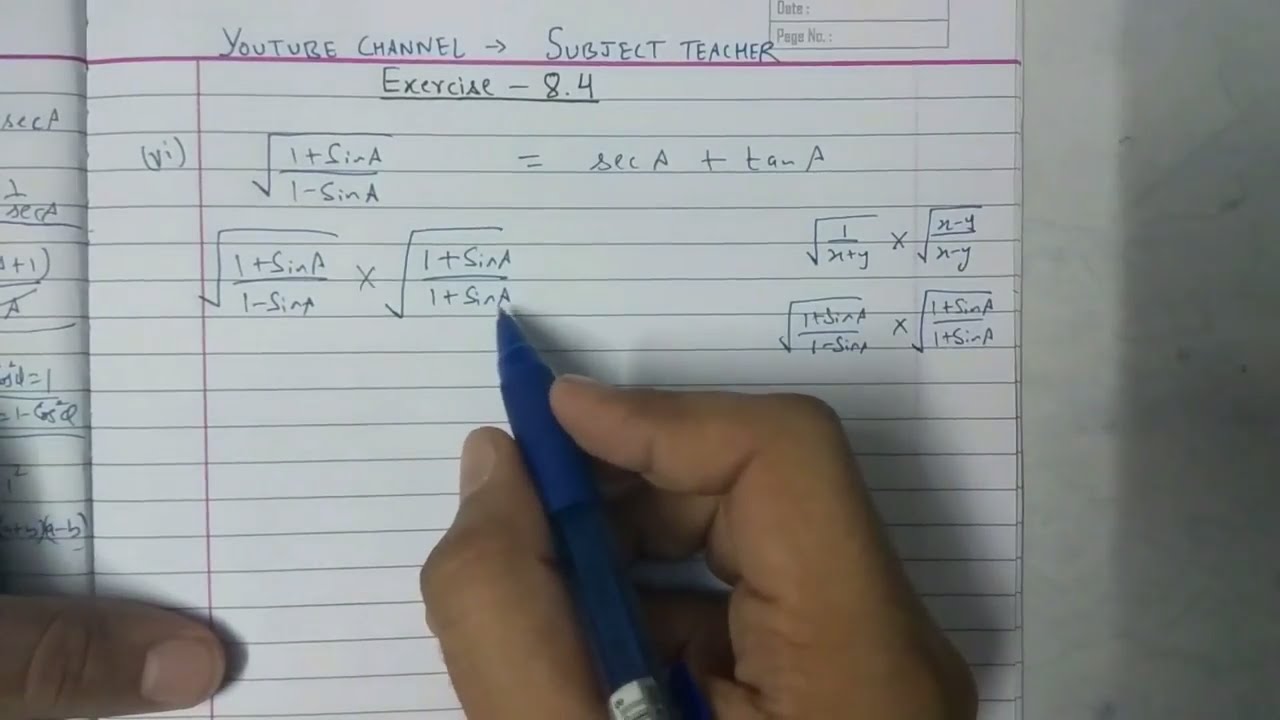 Date :
Page No. :
YOUTUBE CHANNEL → SUBJECT TEACHER
Exercise – 8.4
(vi) √(1+SinA / 1-SinA) = secA + tanA
√(1+SinA / 1-SinA) × √(1+SinA / 1+SinA)
√(1 / x+y) × √(x-y / x-y)
√(1+SinA / 1-SinA) × √(1+SinA / 1+SinA)
secA
1 / secA
+1)
A
=1
=1-Cos²θ
(a-b)